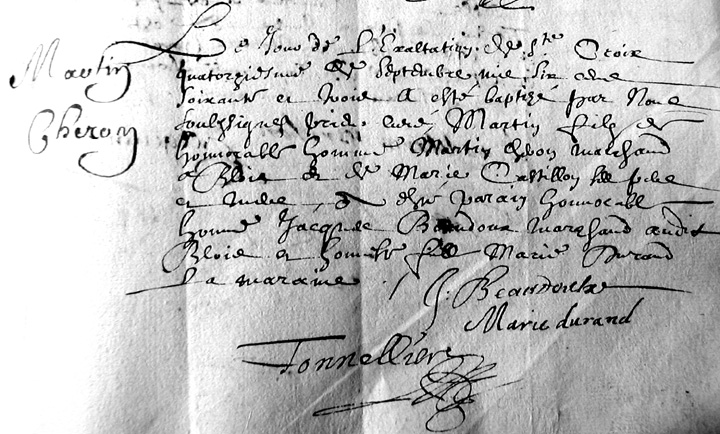 Martin
Cheron
Le Jour de L'Exaltation de Ste Croix
quatorziesme de septembre mil six cens
soixante et trois a esté baptizé par Nous
soubssignez Martin filz de
honnorable homme Martin Cheron marchand
a Blois et de Marie Castillon ses pere
et mere, a esté parain honnorable
homme Jacques Baudoux marchand audit
Blois et honneste fille Marie Durand
La maraine
J. Beaudoulx
Marie durand
Tonnellier